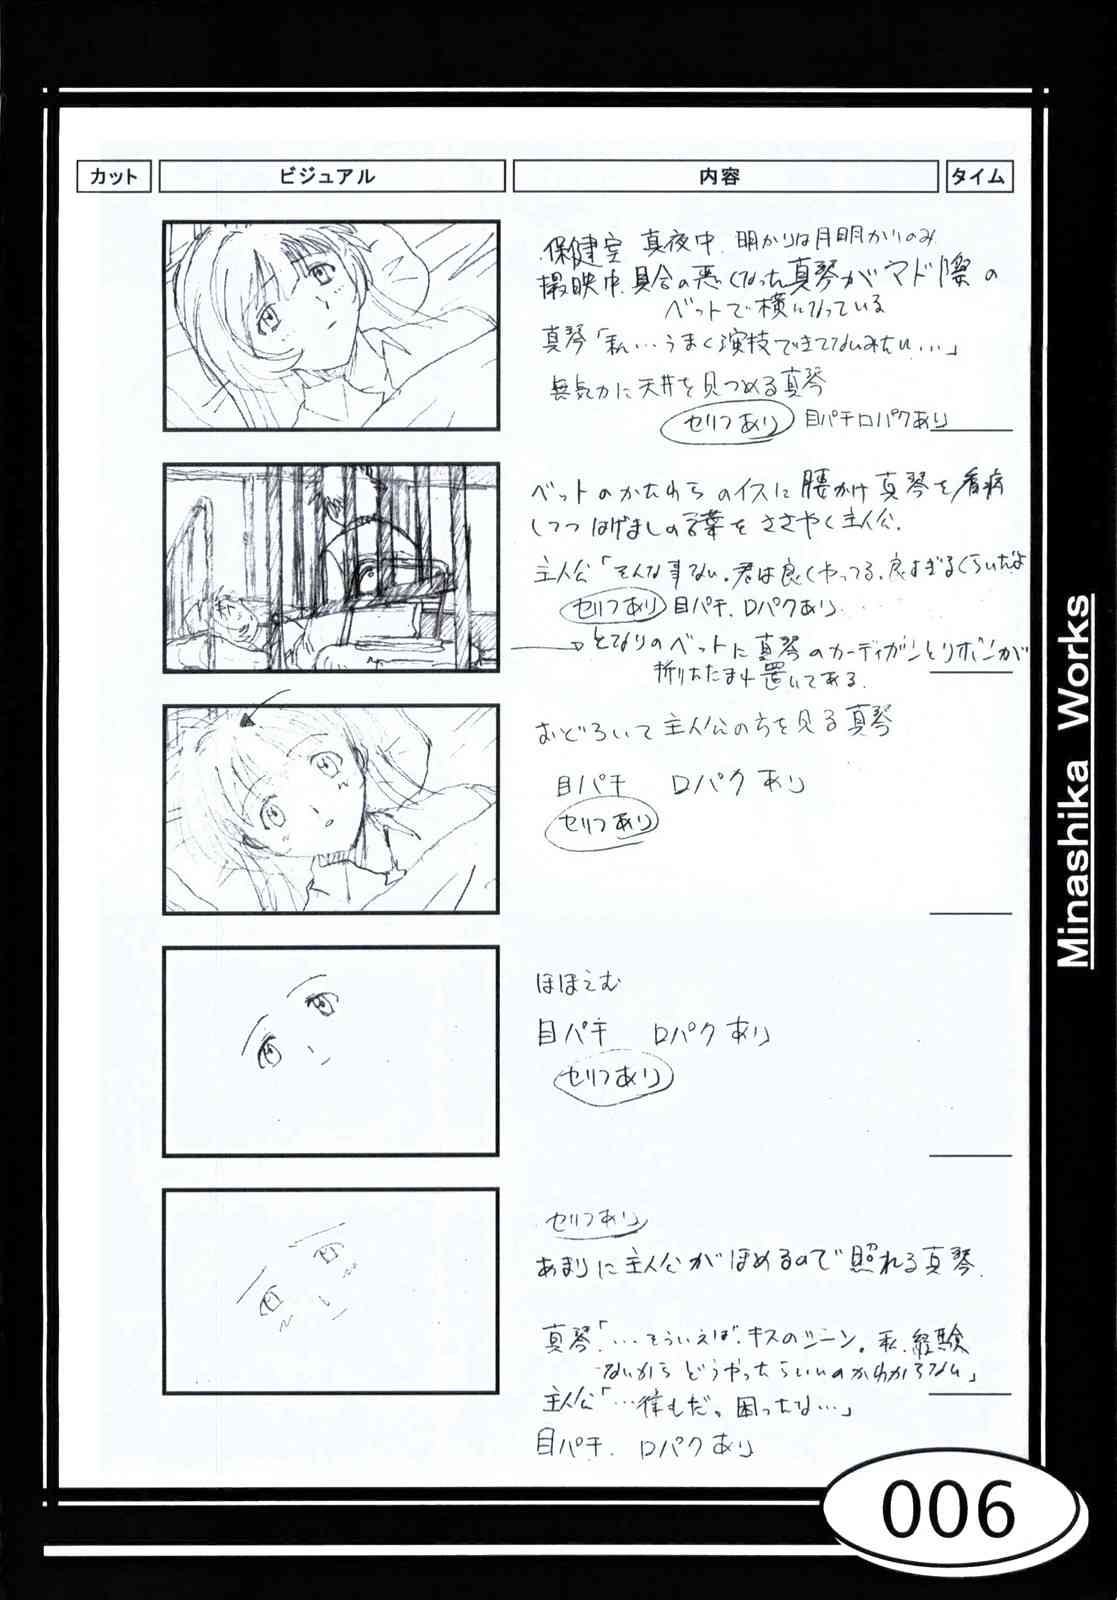 カット
ビジュアル
内容
タイム
保健室 真夜中. 明かりは月明かりのみ
撮映中. 具合の悪くなった真琴がマド際の
ベットで横になっている
真琴「私…うまく演技できてないみたい…」
無気力に天井を見つめる真琴
セリフあり 目パチ口パクあり
ベットのかたわらのイスに腰かけ真琴を看病
しつつはげましの言葉をささやく主人公.
主人公「そんな事ない。君は良くやってる、良すぎるくらいだよ
セリフあり 目パチ、口パクあり
→となりのベットに真琴のカーディガンとリボンが
折りたたまれ置いてある.
おどろいて主人公の方を見る真琴
目パチ 口パクあり
セリフあり
ほほえむ
目パチ 口パクあり
セリフあり
セリフあり
あまりに主人公がほめるので照れる真琴.
真琴「…そういえば、キスのシーン。私、経験
ないからどうやったらいいのかわからない」
主人公「…僕もだ。困ったな…」
目パチ. 口パクあり
Minashika Works
006